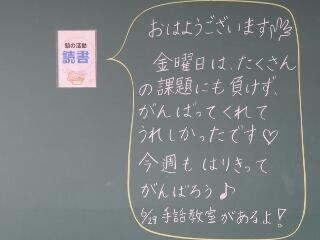 朝の活動
読書
おはようございます
金曜日は、たくさん
の課題にも負けず、
がんばってくれて
うれしかったです♡
今週も はりきって
がんばろう♪
6/29 手話教室があるよ!